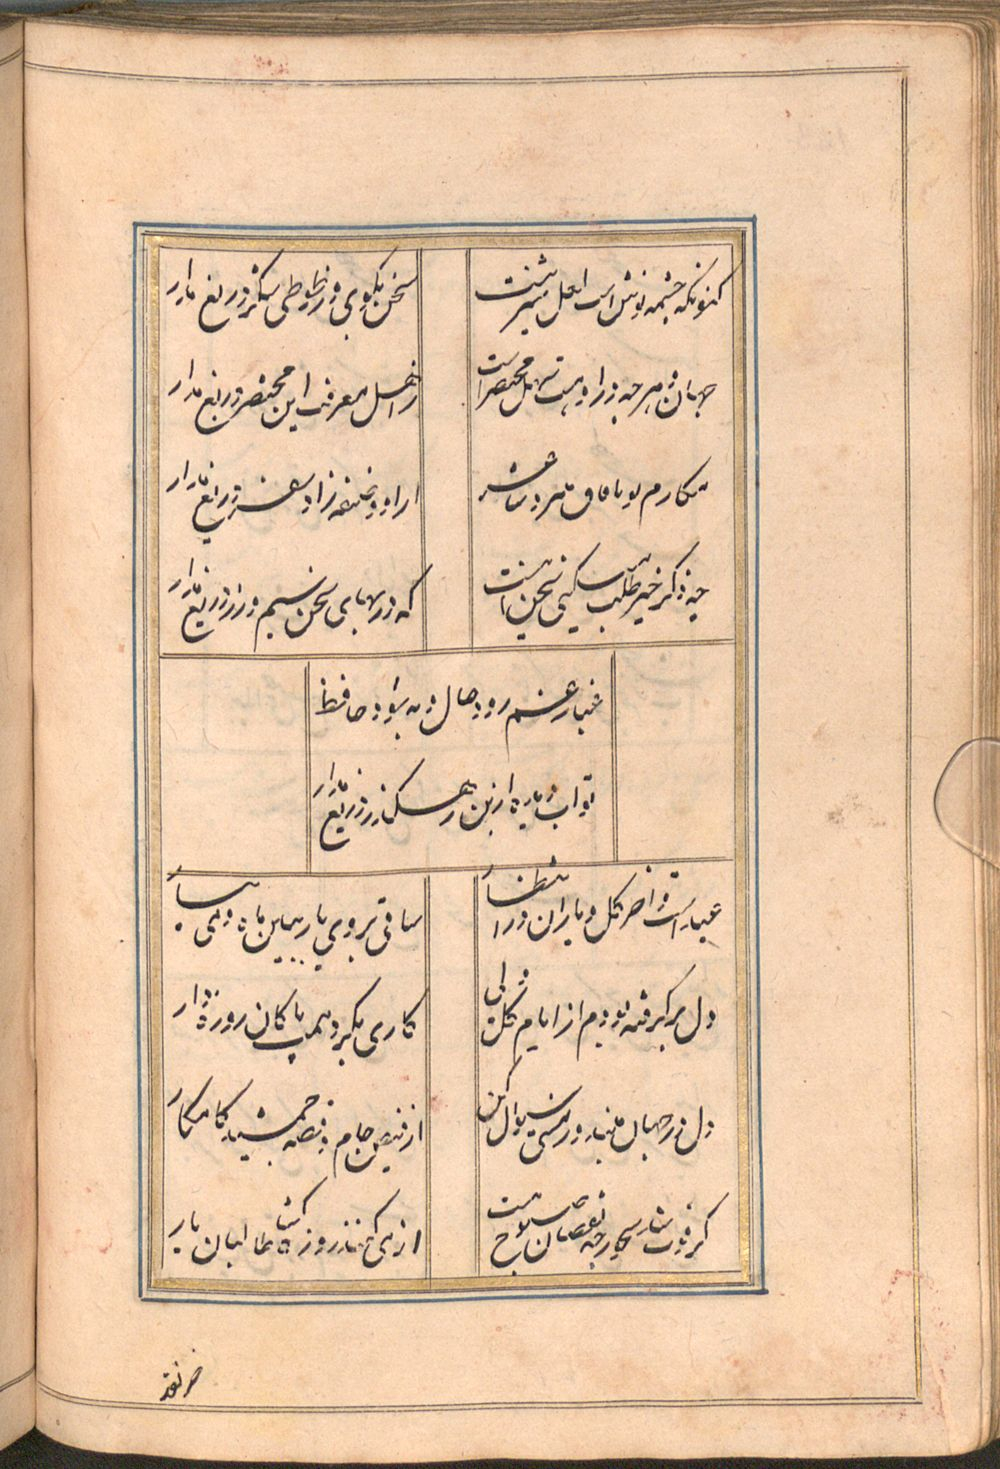 کنونکه چشمه نوش است لعل شیرینت
سخن بگوی و ز طوطی شکر دریغ مدار
جهان و هرچه در او هست سهل و مختصر است
ز اهل معرفت این مختصر دریغ مدار
مکارم تو بآفاق میبرد شاعر
ازو وظیفه و زاد سفر دریغ مدار
چو ذکر خیر طلب میکنی سخن اینست
که در بهای سخن سیم و زر دریغ مدار
غبار غم برود حال به شود حافظ
تو آب دیده ازین رهگذر دریغ مدار
عید است و آخر گل و یاران در انتظار
ساقی بروی یار ببین ماه و می بیار
دل برگرفته بودم از ایام گل ولی
کاری بکرد همت پاکان روزه‌دار
دل در جهان مبند و ز مستی سؤال کن
از فیض جام و قصه جمشید کامکار
گر فوت شد سحور چه نقصان صبوح هست
از می کنند روزه گشا طالبان یار